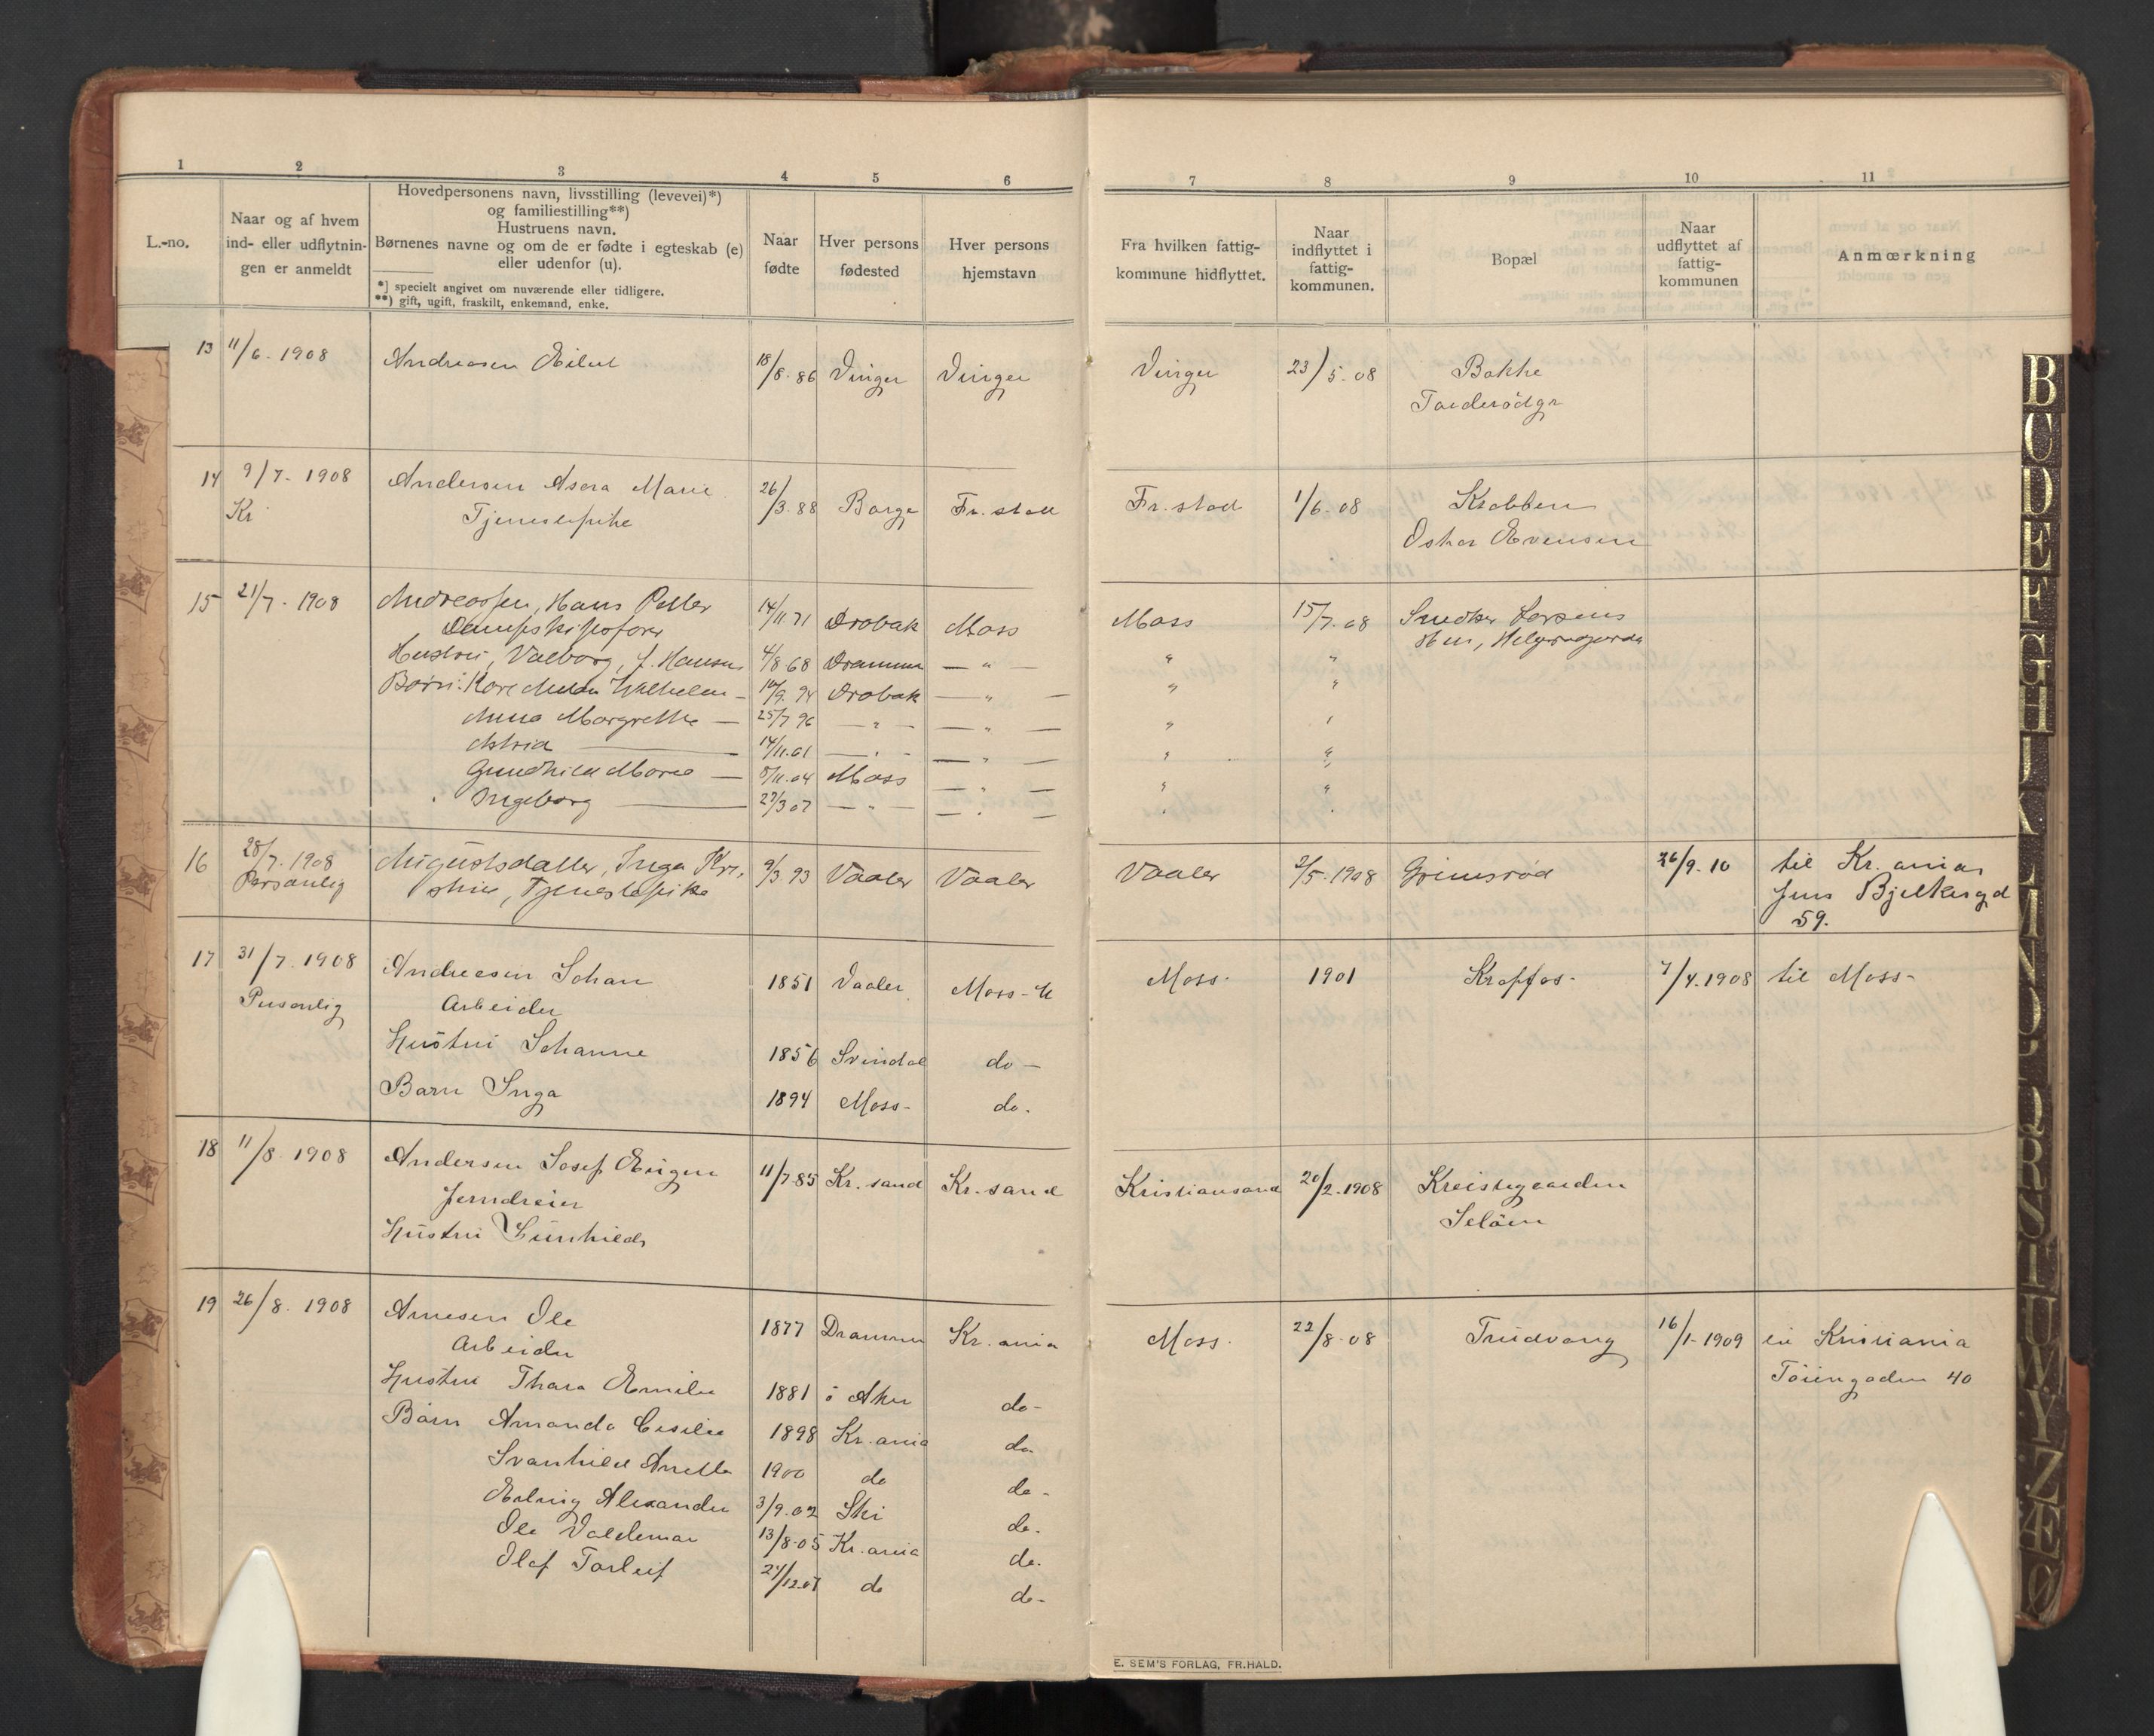 1 2 3 4 5 6 7 8 9 10 11
L.-no.
Naar og af hvem
ind- eller udflytnin-
gen er anmeldt
Hovedpersonens navn, livsstilling (levevei)*)
og familiestilling**)
Hustruens navn.
Børnenes navne og om de er fødte i egteskab (e)
eller udenfor (u).
*) specielt angivet om nuværende eller tidligere.
**) gift, ugift, fraskilt, enkemand, enke.
Naar
fødte
Hver persons
fødested
Hver persons
hjemstavn
Fra hvilken fattig-
kommune hidflyttet.
Naar
indflyttet i
fattig-
kommunen.
Bopæl
Naar
udflyttet af
fattig-
kommunen
Anmœrkning
13 11/6. 1908 Andreasen Eilert 18/8. 86 Vinger Vinger Vinger 23/5. 08 Bakke
14 9/7. 1908 Andersen Asora Marie 26/3. 88 Borge Fr. stad Fr. stad 1/6. 08 Krabben
Kr Tjenestepike Oskar Evensen
15 21/7. 1908 Andreassen, Hans Petter 14/11 71 Drøbak Moss Moss 15/7. 08
Dampskibsfører
Hustru, Valborg, f. Hansen 4/8 68 Drammen — " — " "
Børn: Kåre Wilhelm — 9. 94 Drøbak — " — " "
Anna Margrethe — 25/7 96 — " — — " — "
Astrid — 14/11. 01 — " — — " — " "
Gundhild Marie — 8/11. 04 Moss — " — " "
Ingeborg — 27/3 07 — " — — " —
16 28/7. 1908 Augustsdatter, Inga Kri- 9/3 93 Vaaler Vaaler Vaaler 2/5. 1908 Grimsrød 26/9. 10 til Kr. ania
Personlig stine, Tjenestepike Jens Bjelkesgd
59.
17 31/7. 1908 Andreesen Johan 1851 Vaaler Moss Moss. 1901 Kropfos. 7/4. 1908 til Moss-
Personlig Arbeider
Hustru Johanne 1856 Svindal do —
Barn Inga 1894 Moss- do.
18 11/8. 1908 Andersen Josef Eugen 11/7 85 Kr. sand Kr. sand Kristiansand 20/2. 1908
Jerndreier Seløen
Hustru Gunhild
19 26/8. 1908 Arnesen Ole 1877 Drammen Kr. ania Moss. 22/8. 08 Trudvang 16/1. 1909 til Kristiania
Arbeider Tøiengaden 40
Hustru Thora Emilie 1881 ø Aker do-
Børn Amanda Cesilie 1898 Kr. ania do.
Svanhild Anetta 1900 do do-
Erling Alexander 3/9. 02 Ski do.
Ole Valdemar 13/8. 05 Kr. ania do.
Olaf Torleif 24/12. 07 do do-
E. SEM'S FORLAG, FR.HALD.
B
C
D
E
F
G
H
J
K
L
M
N
O
P
R
S
T
U
W
Y
Z
Æ
Ø